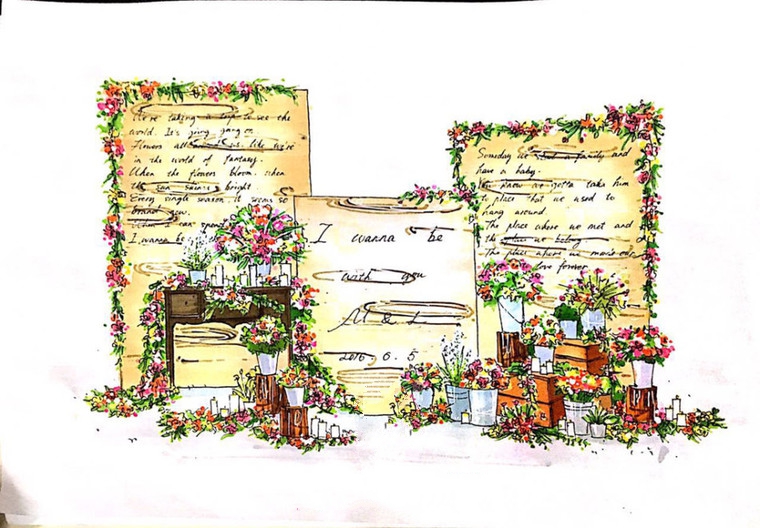 We're taking a trip to see the
world. It's going gang on
Flowers all us. like we're
in the world of fantasy.
When the flowers bloom. when
the sun saints bright
Every single season it seems so
brand new.
I can spend
I wanna be
I wanna be
with you
M & L
2016. 6. 5
Someday we a family and
have a baby.
You know we gotta take him
to place that we used to
hang around.
The place where we met and
the place we belong
The place where we
love forever